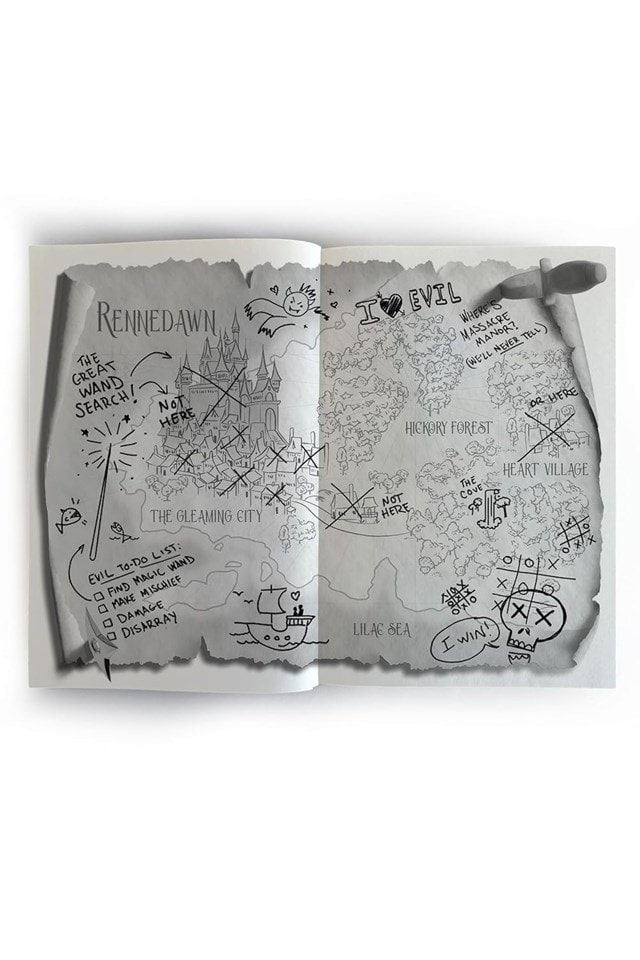 RENNEDAWN
I ♥ EVIL
WHERE'S
MASSACRE
MANOR?
(WE'LL NEVER TELL)
THE
GREAT
WAND
SEARCH!
NOT
HERE
OR HERE
HICKORY FOREST
HEART VILLAGE
THE
COVE
NOT
HERE
THE GLEAMING CITY
EVIL TO-DO LIST:
FIND MAGIC WAND
MAKE MISCHIEF
DAMAGE
DISARRAY
LILAC SEA
I WIN!